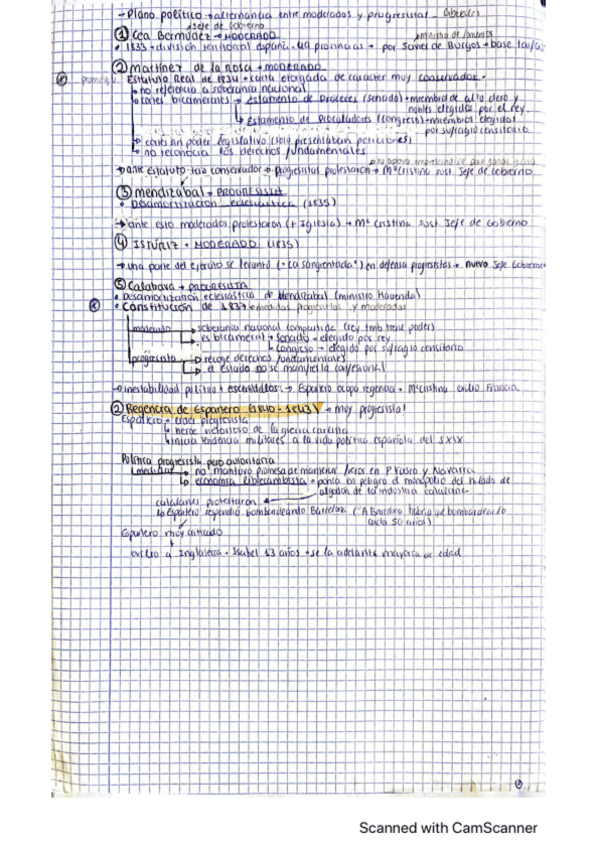 - Plano político → alternancia entre moderados y progresistas - liberales
↗ Jefe de Gobierno
① Cea Bermúdez → MODERADO
ministro de fomento
• 1833 → división territorial españa. 49 provincias → por Javier de Burgos → base
② Martínez de la Rosa → MODERADO
Estatuto Real de 1834 → carta otorgada de caracter muy conservador.
↳ no referencia a soberanía nacional
↳ cortes bicamerales → estamento de Proceres (senado) → miembros de alto clero y nobles elegidos por el rey.
↳ estamento de Procuradores (congreso) → miembros elegidos por sufragio censitario
↳ cortes sin poder legislativo (solo presentaban peticiones)
↳ no reconocía los derechos fundamentales
→ ante estatuto tan conservador → progresistas protestaron → Mª Cristina sust. Jefe de Gobierno
③ Mendizabal → PROGRESISTA
• Desamortización eclesiástica (1835)
→ ante esto moderados protestaron (+ Iglesia) → Mª Cristina sust. Jefe de Gobierno
④ ISTÚRIZ → MODERADO (1835)
→ una parte del ejército se levantó ("La sargentada") en defensa progresistas → nuevo Jefe Gobierno
⑤ Calatrava → PROGRESISTA
• Desamortización eclesiástica de Mendizabal (ministro Hacienda)
• Constitución de 1837 → medidas progresistas y moderadas
moderado → soberanía nacional compartida (rey tmb tiene poder)
↳ es bicameral → senado → elegido por rey
↳ congreso → elegido por sufragio censitario
progresista → recoge derechos fundamentales
↳ el estado no se manifiesta confesional
→ inestabilidad política + escándalos → Espartero ocupa regencia → Mª Cristina exilio Francia
② Regencia de Espartero (1840-1843) → muy progresista!
Espartero → líder progresista
↳ heroe victorioso de la guerra carlista
↳ inicia tendencia militares a la vida política española del s XIX
Política progresista pero autoritaria
medidas → no mantuvo promesa de mantener fueros en P Vasco y Navarra
↳ economía librecambista → ponía en peligro el monopolio del hilado de algodón de la industria catalana
catalanes protestaron
↳ Espartero respondió bombardeando Barcelona ("A Barcelona habría que bombardearla cada 50 años)
Espartero muy criticado
exilio a Inglaterra → Isabel 13 años → se la adelanta mayoría de edad
Scanned with CamScanner